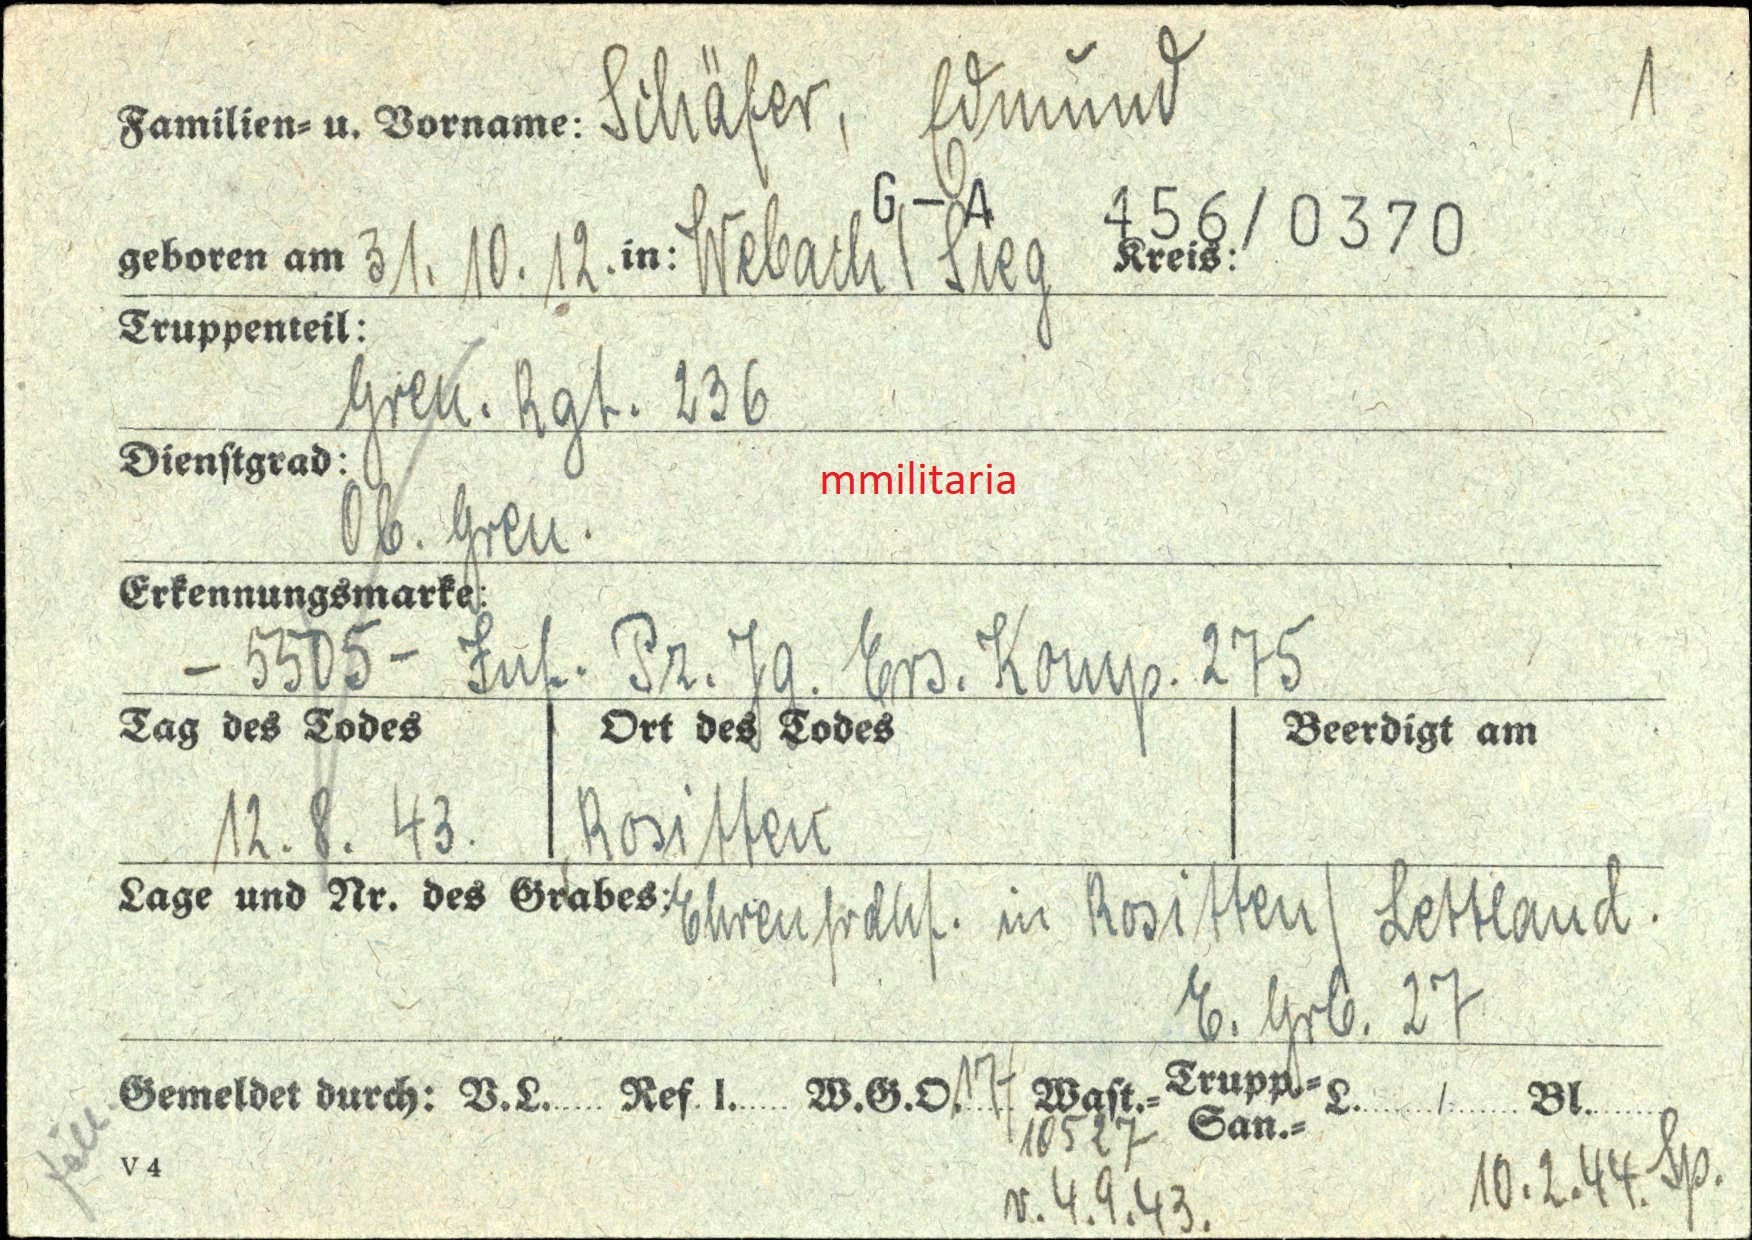 Familien- u. Vorname: Schäfer, Edmund 1
G - A 456/0370
geboren am 31. 10. 12. in: Webach / Sieg Kreis:
Truppenteil:
Gren. Rgt. 236
Dienstgrad:
Ob. Gren.
mmilitaria
Erkennungsmarke:
- 5505 - Inf. Pz. Jg. Ers. Komp. 275
Tag des Todes Ort des Todes Beerdigt am
12. 8. 43. Rositten
Lage und Nr. des Grabes: Ehrenfrdhf. in Rositten / Lettland.
E. Grb. 27
Gemeldet durch: V.L. Ref. I. W.G.O. 17 Wast.- Trupp.- San.- L. / Bl.
10527
V 4
v. 4. 9. 43.
10. 2. 44. Sp.